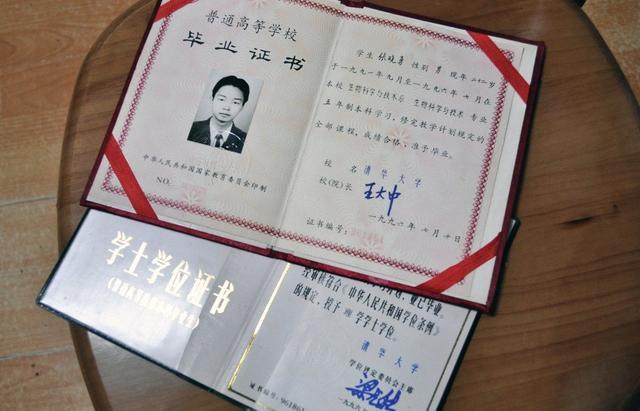 普通高等学校
毕业证书
中华人民共和国国家教育委员会印制
NO.
学生 张晓勇 性别 男 现年 二十二岁
于一九九一年九月至一九九六年七月在
本校 生物科学与技术系 生物科学与技术 专业
五年制本科学习，修完教学计划规定的
全部课程，成绩合格，准予毕业。
校名 清华大学
校(院)长 王大中
证书编号:
一九九六年七月十日
学士学位证书
经审核符合《中华人民共和国学位条例》
的规定，授予 理 学学士学位。
清华大学
学位评定委员会主席
证书编号
一九九六年